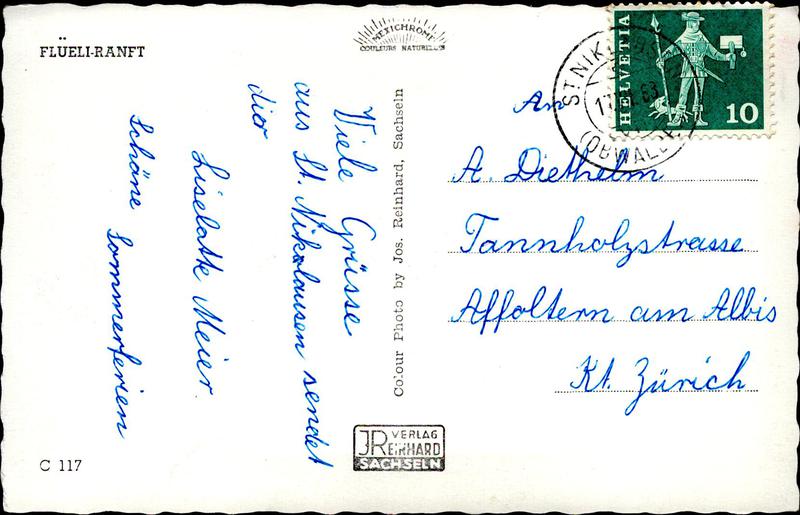 FLÜELI-RANFT
MEXICHROME
COULEURS NATURELLES
Viele Grüsse
aus St. Nikolausen sendet
dir
Liselatte Meier.
Schöne Sommerferien
Colour Photo by Jos. Reinhard, Sachseln
HELVETIA
10
ST NIKLAUSEN
(OBWALDEN)
An
A. Diethelm
Tannholzstrasse
Affoltern am Albis
Kt. Zürich
JR VERLAG
REINHARD
SACHSELN
C 117